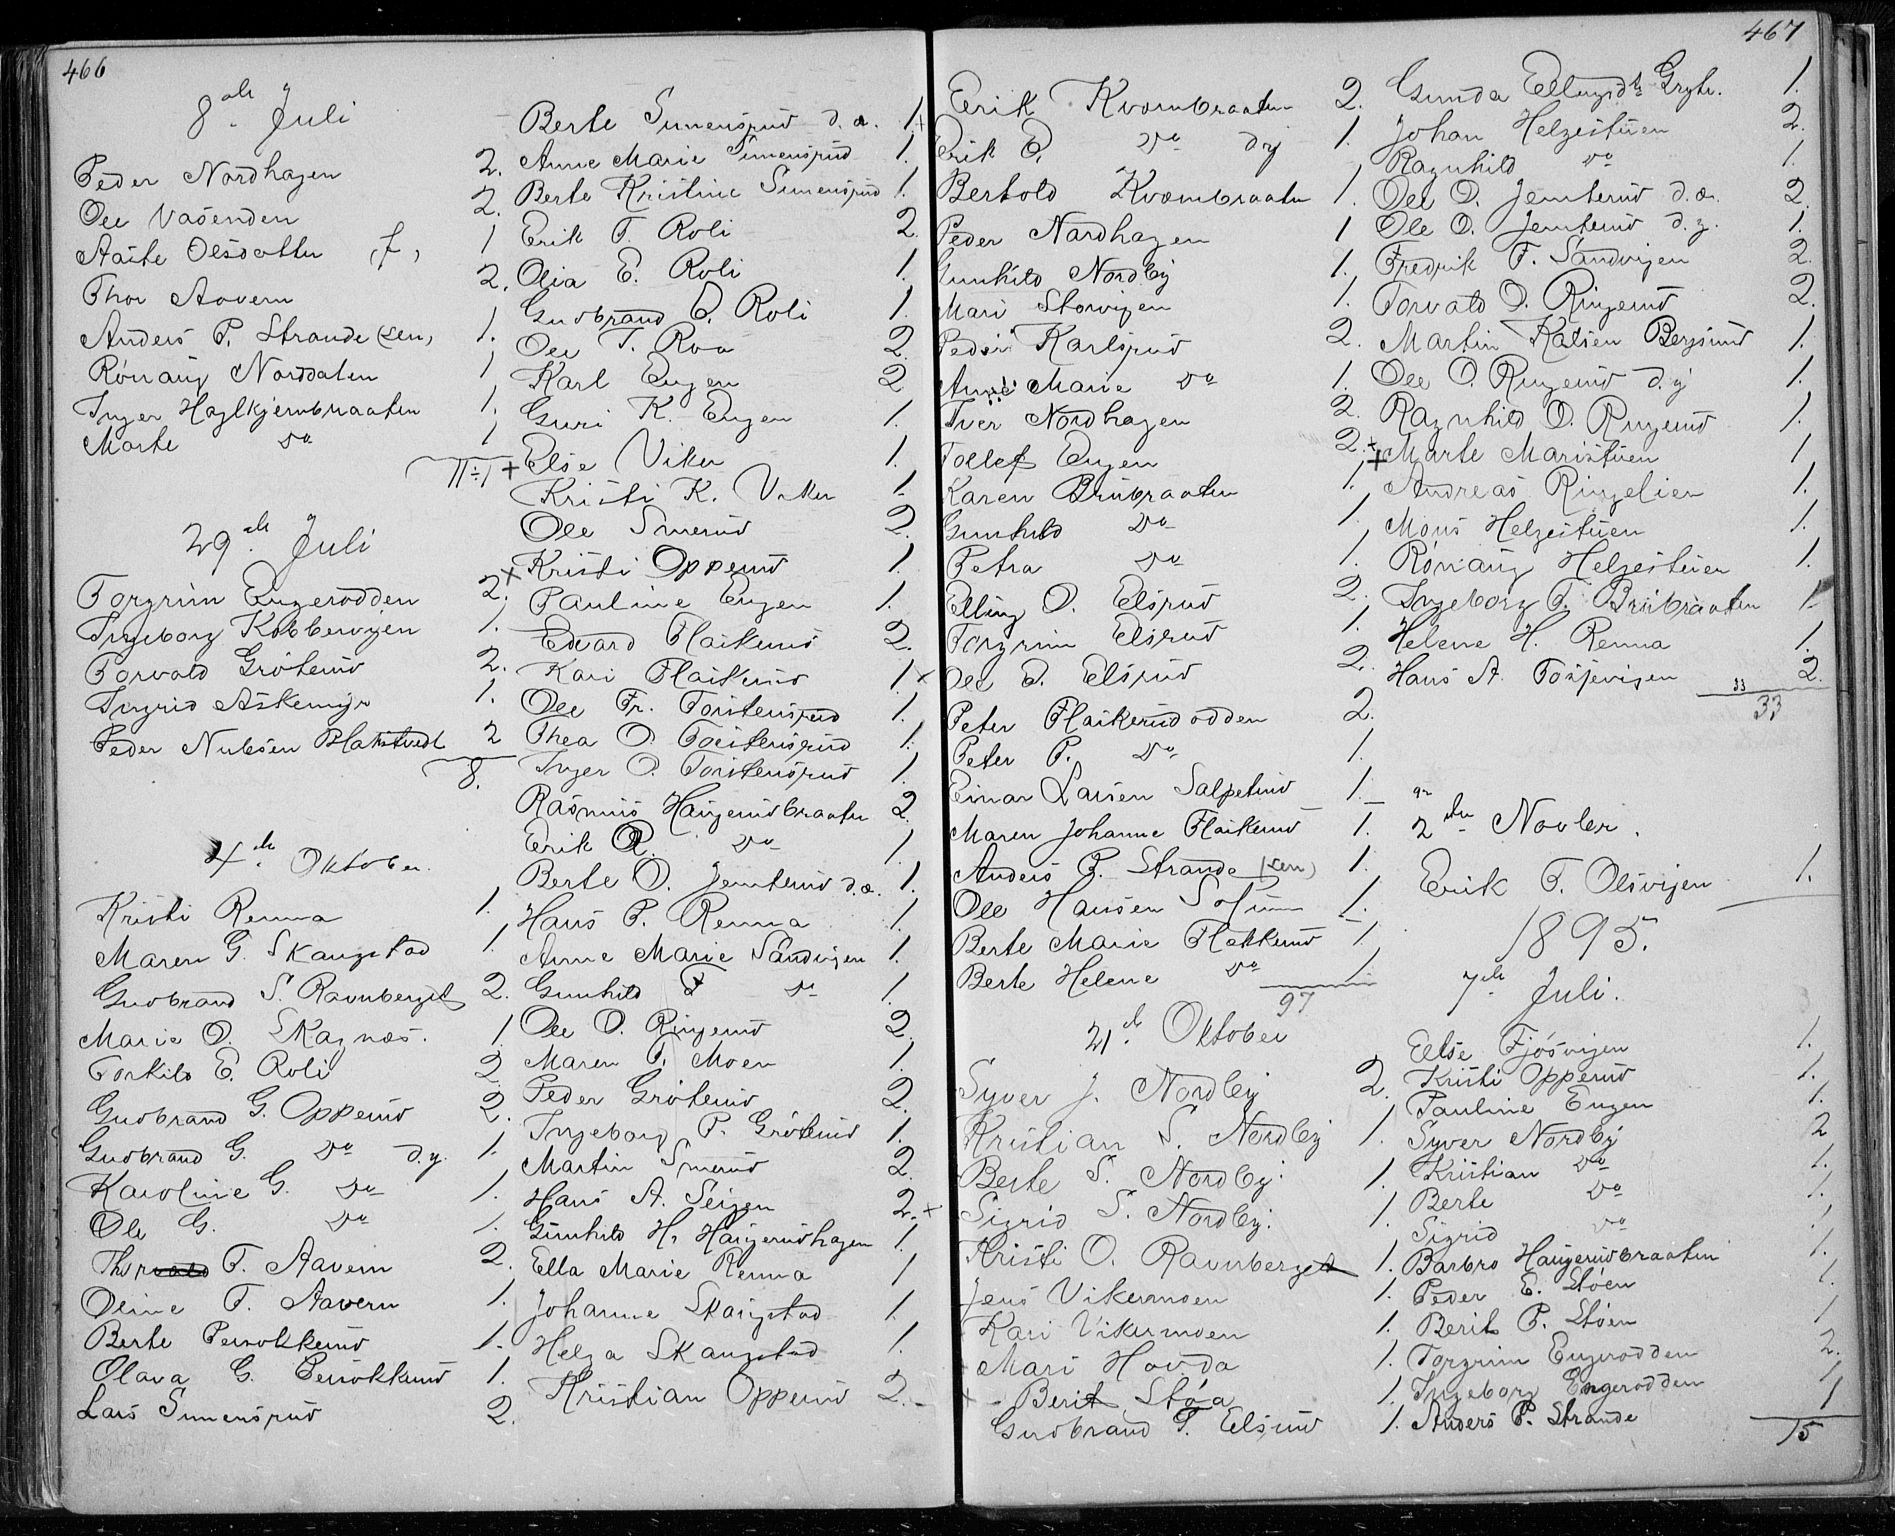 466
8de Juli
Peder Nordhagen 2.
Ole Vasenden 2.
Aaste Olsdatter f, 1
Thor Aavern 2.
Anders P. Strande (sen, 1.
Rönaug Norddalen 1
Inger Haglkjernbraaten 1.
Marte do 1
11÷1
29de Juli
Torgrim Engerodden 2.
Ingeborg Kobbervigen 1.
Torvald Grøterud 2.
Ingrid Askemyr 1.
Peder Nubsen Plakstvedt 2
8.
4de Oktober.
Kristi Renna 1.
Maren G. Skaugstad 1.
Gudbrand S. Ravnberget 2.
Marie O. Skagnæs. 1.
Torkild E. Roli 2.
Gudbrand G. Opperud 2.
Gudbrand G. do d.y. 1.
Karoline G. do 1.
Ole G. do 1.
Thor T. Aavern 2.
Oline T. Aavern 1.
Berte Perstokkerud 1.
Olava G. 1.
Lars Simensrud 2.
Berte Simensrud d.æ. 1+
Anne Marie Simensrud 1.
Berte Kristine Simensrud 1.
Erik T. Roli 2.
Olia E. Roli 1.
Gudbrand O. Roli 1.
Ole T. Roa 2.
Karl Engen 2
Guri K. Engen 1.
+ Else Viker 1.
Kristi K. Viker 1.
Ole Smerud 2.
+ Kristi Opperud 1.
Pauline Engen 1.
Edvard Flaskerud 2.
Kari Flaskerud 1.+
Ole Fr. Torstensrud 1.
Thea O. Torstensrud 1.
Inger O. Torstensrud 1.
Rasmus Haugerudbraaten 2.
Erik R. do 1.
Berte O. Jemterud d.æ. 1.
Hans P. Renna 1.
Anne Marie Sandvigen 1.
Gunhild F do 1.
Ole O. Ringerud 2.
Maren T. Moen 1.
Peder Grøterud 2.
Ingeborg P. Grøterud 1.
Martin Smerud 2.
Hans A. Seigen 2.+
Gunhild H. Haugerudhagen 1.
Ella Marie Renna 1
Johanne Skaugstad 1.
Helga Skaugstad 1.
Kristian Opperud 2.
467
Erik Kvernbraaten 2.
Erik E. do dy 1.
Bertold Kvernbraaten 1.
Peder Nordhagen 1
Gunhild Nordby 1.
Mari Storvigen 1.
Peder Karlsrud 2.
Anne Marie do 1.
Iver Nordhagen 2.
Tollef Engen 2.
Karen Brubraaten 1.
Gunhild do 1
Petra do 1.
Elling O. Elsrud 2.
Torgrim Elsrud 1.
Ole E. Elsrud 2.
Peter Flaskerudodden 2.
Peter P. do 1.
Einar Larsen Salpeterud 1.
Maren Johanne Flaskerud 1.
Anders P. Strande (sen) 1.
Ole Hansen 1.
Berte Marie Flakkerud 1.
Berte Helene do 1.
97
21de Oktober
Syver J. Nordby 2.
Kristian S. Nordby 1.
Berte S. Nordby. 1.
Sigrid S. Nordby. 1.
Kristi O. Ravnberget 1.
Jens Vikermoen 1.
Kari Vikermoen 1.
Mari Hovda 1.
+ Berit Støa 1.
Gudbrand T. Elsrud 1.
Gunda Ellingsdtr Gryte. 1.
Johan Helgestuen 2.
Ragnhild do 1.
Ole O. Jemterud d.æ. 2.
Ole O. Jemterud d.y. 1.
Fredrik F. Sandvigen 2.
Torvald O. Ringerud 2.
Martin Kalsen Bergsund 1.
Ole O. Ringerud d.y 1.
Ragnhild O. Ringerud 1.
+ Marte Maristuen 1
Andreas Ringelien 1.
Mons Helgestuen 1.
Rönaug Helgestuen 1.
Ingeborg T. Brubraaten 1
Helene H. Renna 1.
Hans A. Tosjevigen 2.
33
33
2den Novbr.
Erik T. Olsvigen 1.
1895.
7de Juli.
Else Fjösvigen 1.
Kristi Opperud 1.
Pauline Engen 1.
Syver Nordby 2
Kristian do 1.
Berte do 1.
Sigrid do 1.
Barbro Haugerudbraaten 1.
Peder E. Støen 1.
Berit P. Støen 1
Torgrim Engerodden 2.
Ingeborg Engerodden 1
Anders P. Strande 1
15